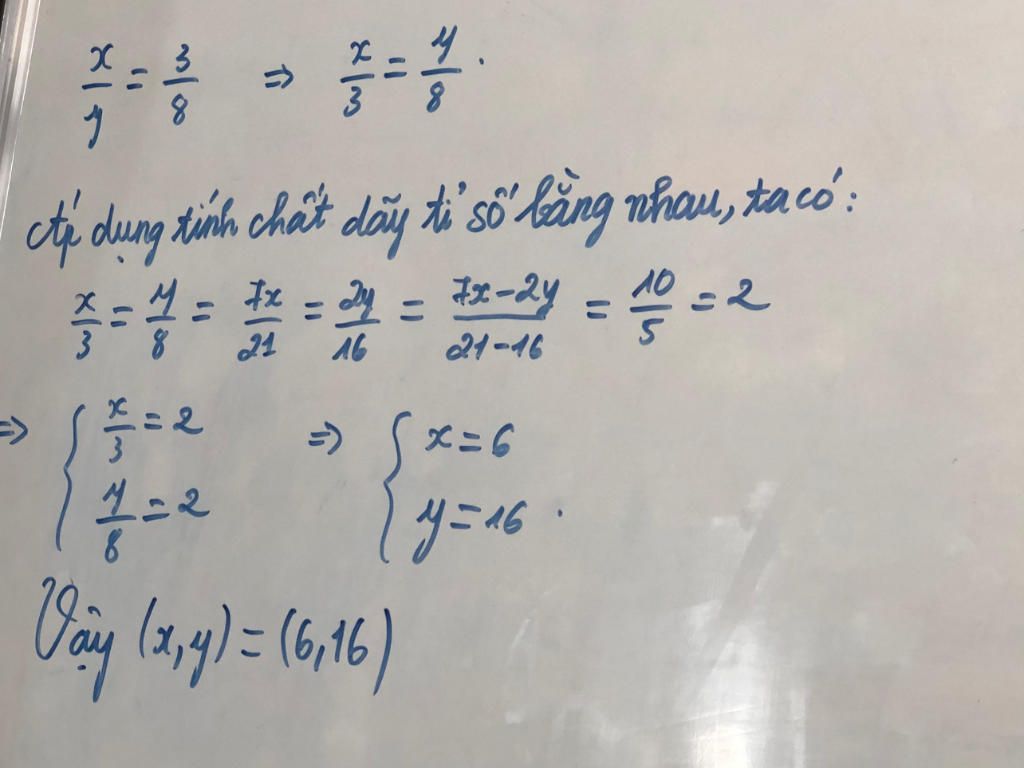 x/y = 3/8 => x/3 = y/8.
Áp dụng tính chất dãy tỉ số bằng nhau, ta có:
x/3 = y/8 = 7x/21 = 2y/16 = 7x-2y/21-16 = 10/5 = 2
=> { x/3 = 2 => { x = 6
y/8 = 2 y = 16.
Vậy (x,y) = (6,16)